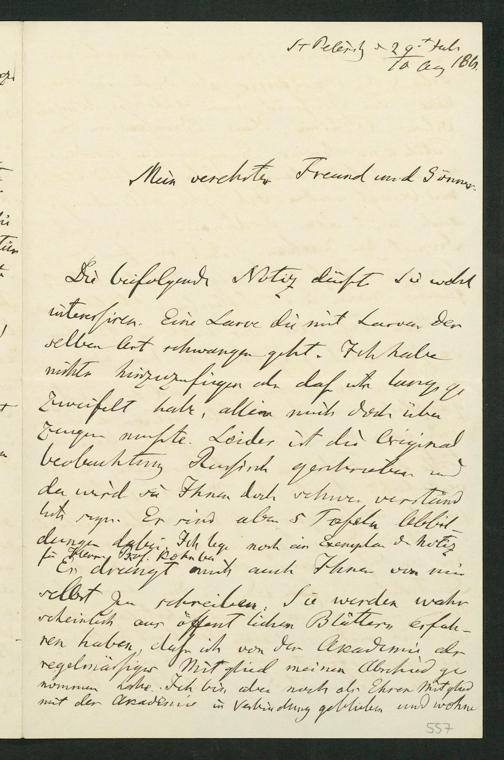 St Petersb. d 29st Juli
10 Aug 186
Mein verehrter Freund und Gönner.
Die beifolgende Notiz dürfte Sie wohl
interessiren. Eine Larve die mit Larven der
selben Art schwanger geht. Ich habe
nichts hinzuzufügen als daß ich lange ge
zweifelt habe, allein mich doch über
zeugen mußte. Leider ist die Original
beobachtung Russisch geschrieben und
da wird sie Ihnen doch schwer verständ
lich seyn. Es sind aber 5 Tafeln Abbil
dungen dabei. Ich lege noch ein Exemplar der Notiz
für Herrn Prof.
Es draengt mich auch Ihnen von mir
selbst zu schreiben. Sie werden wahr
scheinlich aus öffentlichen Blättern erfah-
ren haben, daß ich von der Akademie als
regelmässiges Mitglied meinen Abschied ge
nommen habe. Ich bin aber noch als Ehren Mitglied
mit der Akademie in Verbindung geblieben und wohne
557